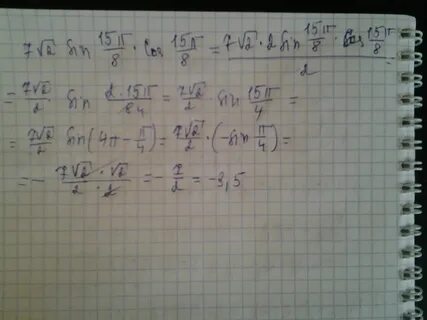 7√2 sin 15π/8 · cos 15π/8 = 7√2 · 2 sin 15π/8 · cos 15π/8 / 2 =
= 7√2/2 sin 2 · 15π/8 4 = 7√2/2 · sin 15π/4 =
= 7√2/2 sin(4π - π/4) = 7√2/2 · (-sin π/4) =
= - 7√2 · √2 / 2 · 2 = - 7/2 = -3,5